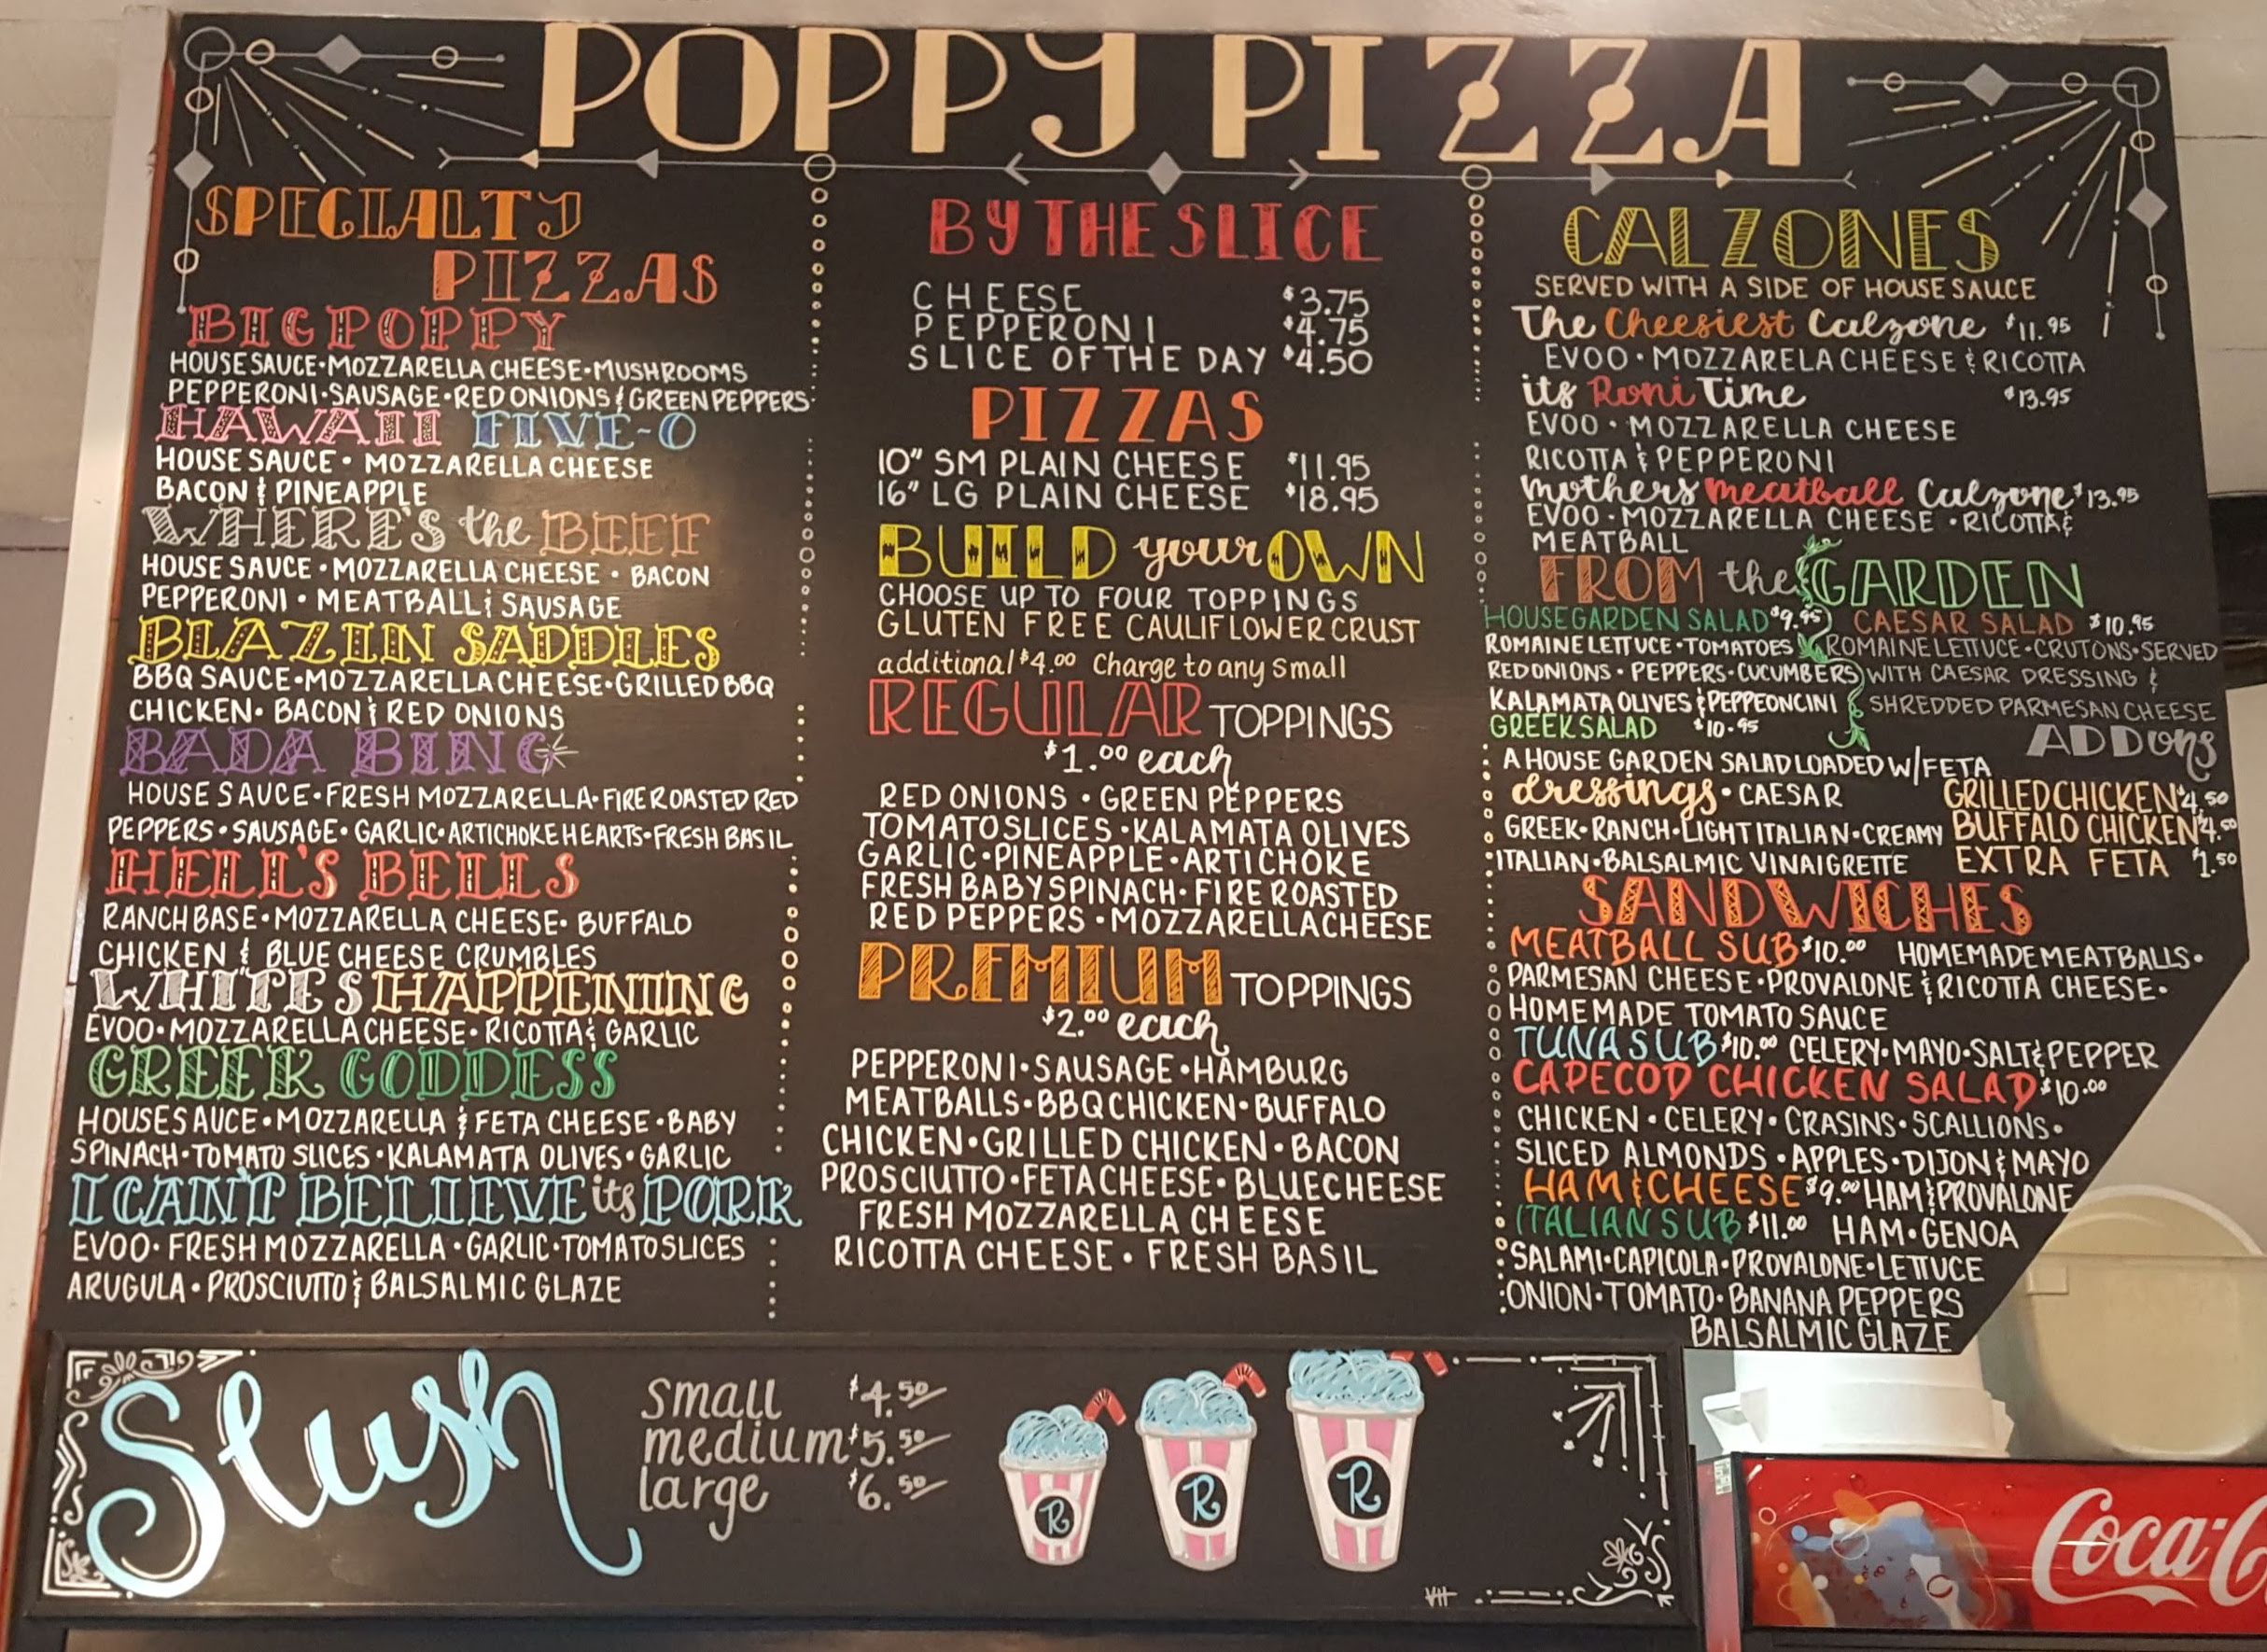 POPPY PIZZA
SPECIALTY
PIZZAS
BIG POPPY
HOUSE SAUCE•MOZZARELLA CHEESE•MUSHROOMS
PEPPERONI•SAUSAGE•RED ONIONS & GREEN PEPPERS
HAWAII FIVE-O
HOUSE SAUCE• MOZZARELLA CHEESE
BACON & PINEAPPLE
WHERE'S the BEEF
HOUSE SAUCE •MOZZARELLA CHEESE • BACON
PEPPERONI • MEATBALL & SAUSAGE
BLAZIN SADDLES
BBQ SAUCE•MOZZARELLA CHEESE•GRILLED BBQ
CHICKEN• BACON & RED ONIONS
BADA BING
HOUSE SAUCE•FRESH MOZZARELLA•FIRE ROASTED RED
PEPPERS•SAUSAGE•GARLIC•ARTICHOKE HEARTS•FRESH BASIL
HELL'S BELLS
RANCH BASE•MOZZARELLA CHEESE• BUFFALO
CHICKEN & BLUE CHEESE CRUMBLES
WHITE'S HAPPENING
EVOO•MOZZARELLA CHEESE•RICOTTA & GARLIC
GREEK GODDESS
HOUSE SAUCE•MOZZARELLA & FETA CHEESE•BABY
SPINACH•TOMATO SLICES•KALAMATA OLIVES•GARLIC
I CAN'T BELIEVE its PORK
EVOO• FRESH MOZZARELLA•GARLIC•TOMATO SLICES
ARUGULA•PROSCIUTTO & BALSALMIC GLAZE
BY THE SLICE
CHEESE $3.75
PEPPERONI $4.75
SLICE OF THE DAY $4.50
PIZZAS
10" SM PLAIN CHEESE $11.95
16" LG PLAIN CHEESE $18.95
BUILD your OWN
CHOOSE UP TO FOUR TOPPINGS
GLUTEN FREE CAULIFLOWER CRUST
additional $4.00 Charge to any small
REGULAR TOPPINGS
$1.00 each
RED ONIONS • GREEN PEPPERS
TOMATO SLICES •KALAMATA OLIVES
GARLIC•PINEAPPLE•ARTICHOKE
FRESH BABY SPINACH• FIRE ROASTED
RED PEPPERS •MOZZARELLA CHEESE
PREMIUM TOPPINGS
$2.00 each
PEPPERONI•SAUSAGE•HAMBURG
MEATBALLS•BBQ CHICKEN•BUFFALO
CHICKEN•GRILLED CHICKEN•BACON
PROSCIUTTO•FETA CHEESE•BLUE CHEESE
FRESH MOZZARELLA CHEESE
RICOTTA CHEESE • FRESH BASIL
CALZONES
SERVED WITH A SIDE OF HOUSE SAUCE
The Cheesiest Calzone $11.95
EVOO•MOZZARELA CHEESE & RICOTTA
its Roni Time $13.95
EVOO • MOZZARELLA CHEESE
RICOTTA & PEPPERONI
mothers meatball Calzone $13.95
EVOO•MOZZARELLA CHEESE •RICOTTA &
MEATBALL
FROM the GARDEN
HOUSE GARDEN SALAD $9.95
ROMAINE LETTUCE•TOMATOES
RED ONIONS • PEPPERS•CUCUMBERS
KALAMATA OLIVES & PEPPEONCINI
CAESAR SALAD $10.95
ROMAINE LETTUCE•CRUTONS•SERVED
WITH CAESAR DRESSING &
SHREDDED PARMESAN CHEESE
GREEK SALAD $10.95
A HOUSE GARDEN SALAD LOADED W/FETA
dressings•CAESAR
GREEK•RANCH•LIGHT ITALIAN•CREAMY
ITALIAN•BALSALMIC VINAIGRETTE
ADD ons
GRILLED CHICKEN $4.50
BUFFALO CHICKEN $4.50
EXTRA FETA $1.50
SANDWICHES
MEATBALL SUB $10.00 HOMEMADE MEATBALLS•
PARMESAN CHEESE•PROVALONE & RICOTTA CHEESE•
HOMEMADE TOMATO SAUCE
TUNA SUB $10.00 CELERY•MAYO•SALT & PEPPER
CAPECOD CHICKEN SALAD $10.00
CHICKEN • CELERY•CRASINS•SCALLIONS•
SLICED ALMONDS •APPLES•DIJON & MAYO
HAM & CHEESE $9.00 HAM & PROVALONE
ITALIAN SUB $11.00 HAM•GENOA
SALAMI•CAPICOLA•PROVALONE•LETTUCE
ONION•TOMATO•BANANA PEPPERS
BALSALMIC GLAZE
Slush
small $4.50
medium $5.50
large $6.50
R
R
R
VH
Coca-C